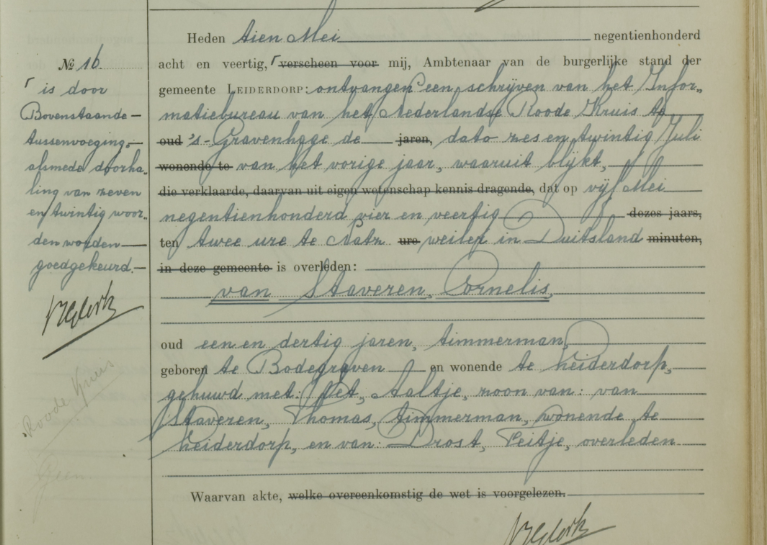 Heden tien Mei negentienhonderd
acht en veertig, ⌈ verscheen voor mij, Ambtenaar van de burgerlijke stand der
gemeente LEIDERDORP: ontvangen een schrijven van het Infor-
matiebureau van het Nederlandse Roode Kruis te
oud 's-Gravenhage de jaren, dato zes en twintig Juli
wonende te van het vorige jaar, waaruit blijkt,
die verklaarde, daarvan uit eigen wetenschap kennis dragende, dat op vijf Mei
negentienhonderd vier en veertig dezes jaars,
ten twee ure te Natz ure weiler in Duitsland minuten,
in deze gemeente is overleden:
van Staveren, Cornelis,
oud een en dertig jaren, timmerman,
geboren te Bodegraven en wonende te Leiderdorp,
gehuwd met: Pet, Aaltje, zoon van: van
Staveren, Thomas, timmerman, wonende te
Leiderdorp, en van: Drost, Peitje, overleden
Waarvan akte, welke overeenkomstig de wet is voorgelezen.
№ 16.
⌈ is door
Bovenstaande
tussenvoeging,
alsmede doorha-
ling van zeven
en twintig woor-
den worden
goedgekeurd.
Roode Kruis